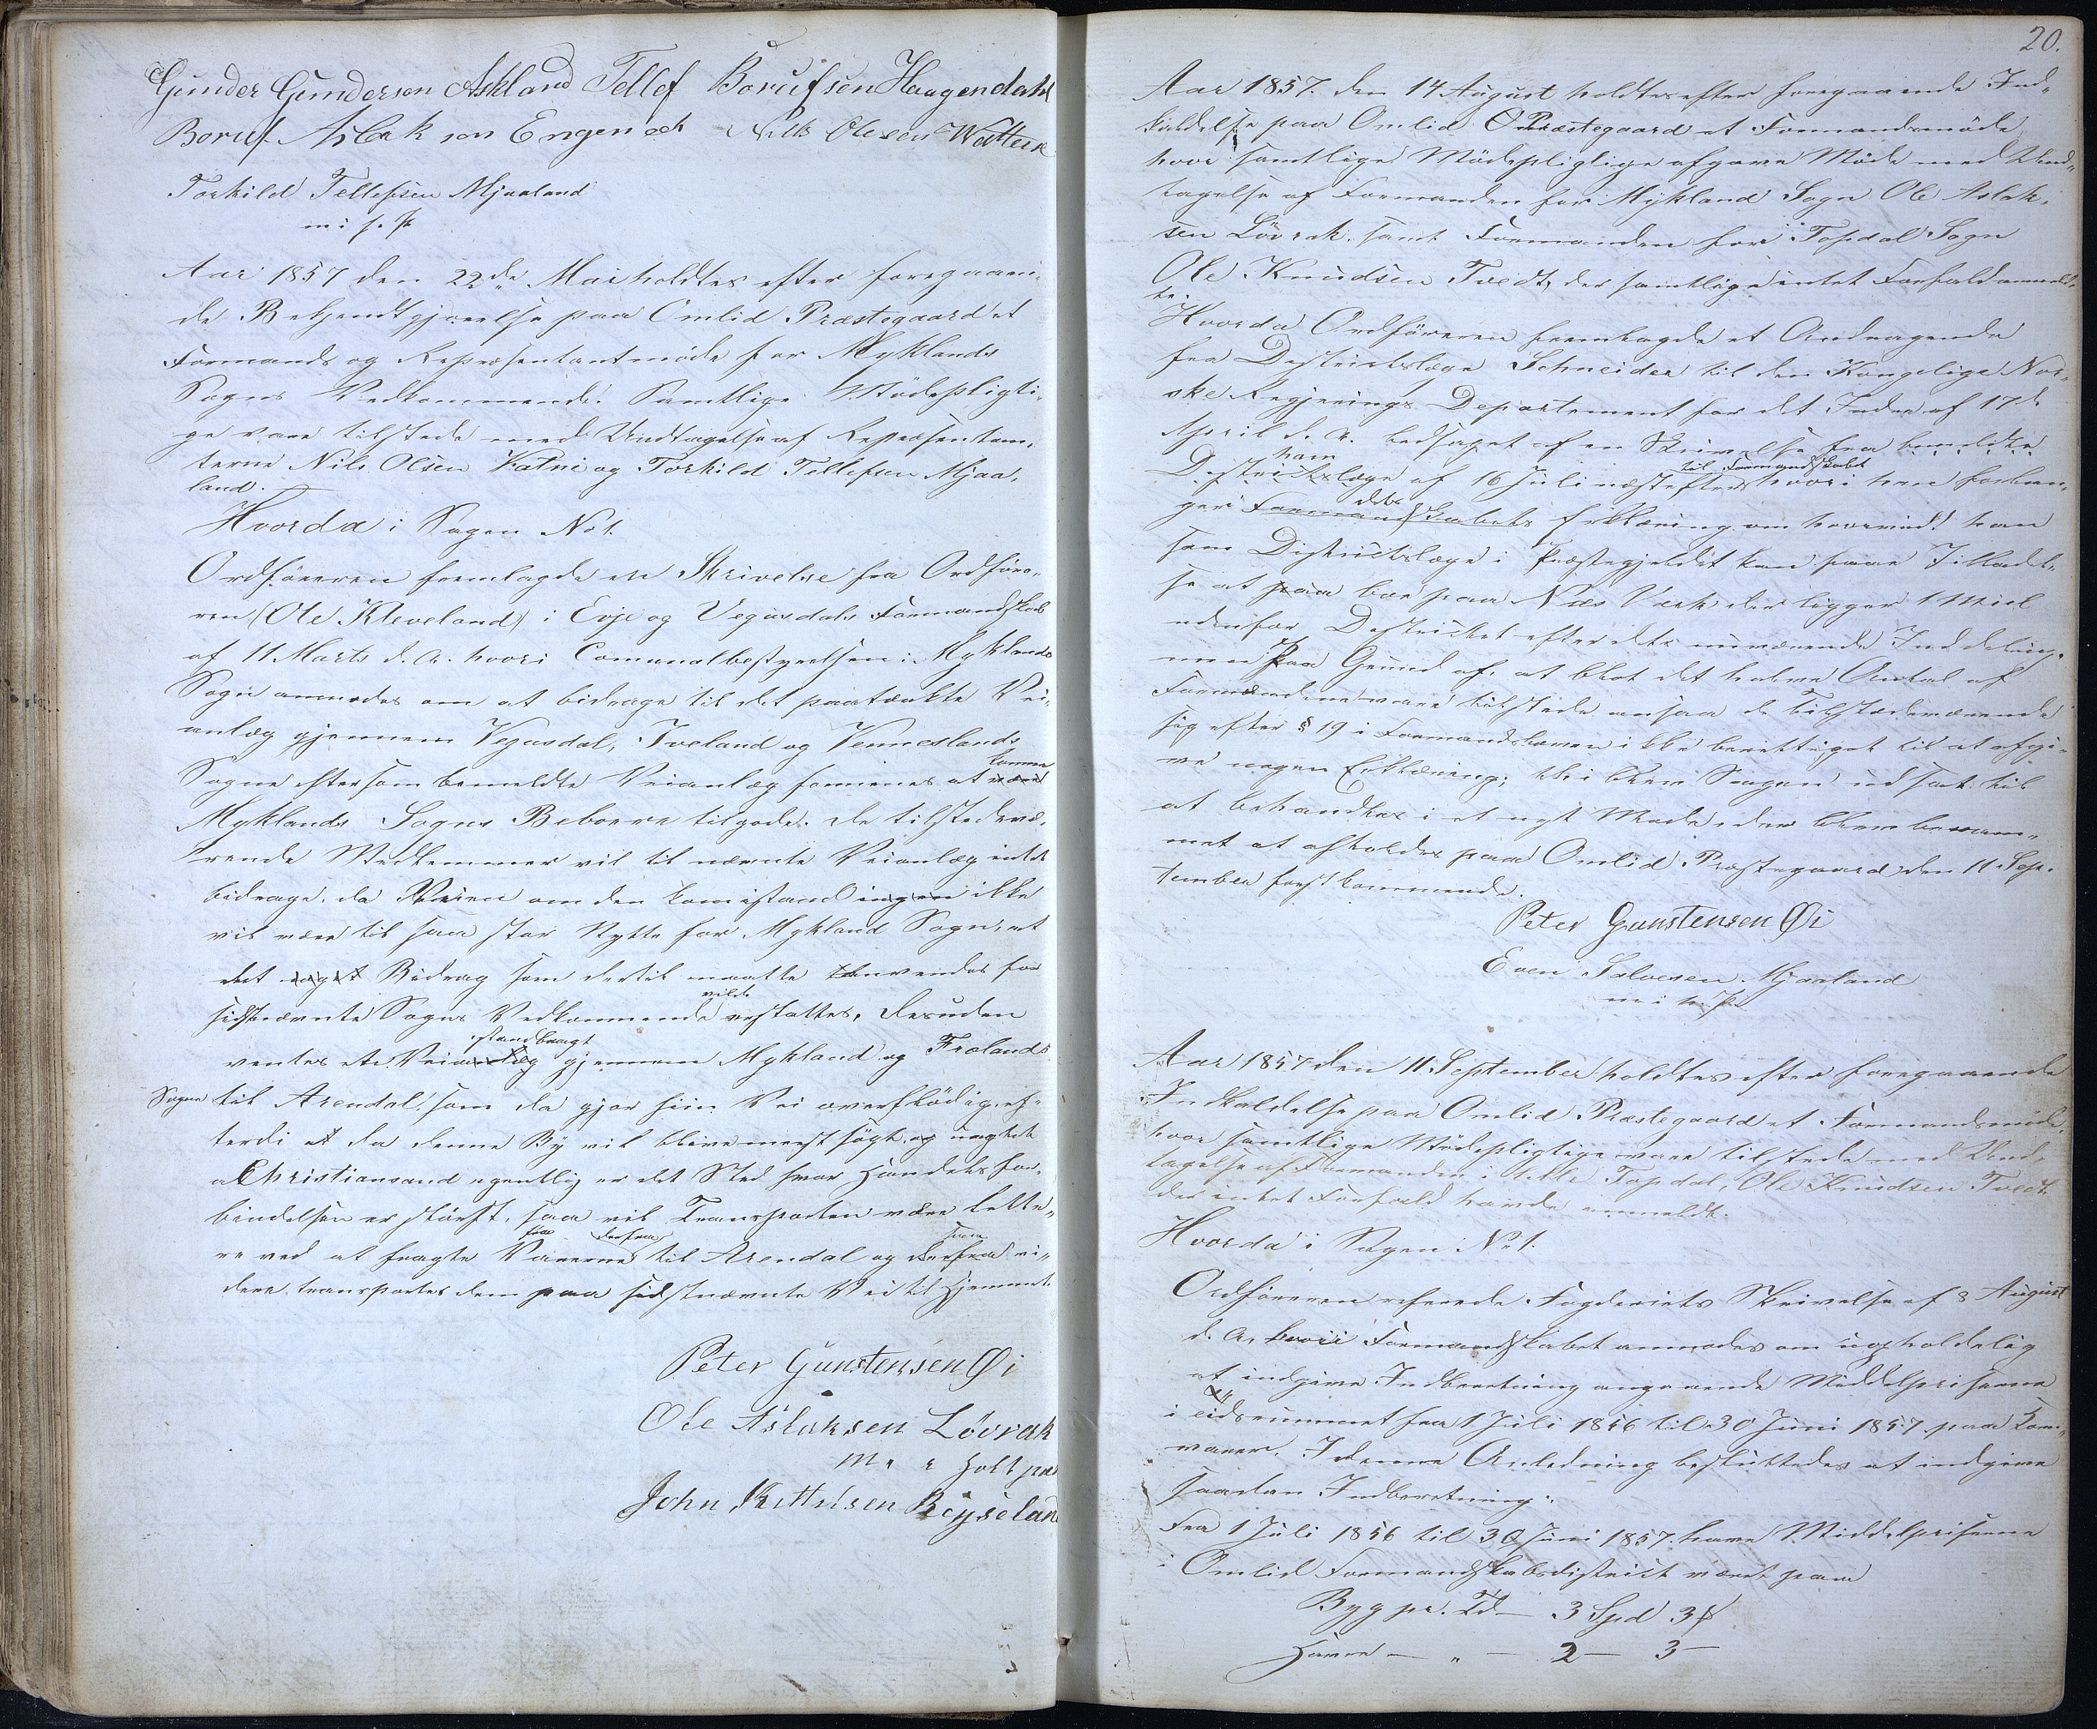 Gunder Gunderson Askland Tellef Borufsen Haugendahl
Boruf Aslak son Engen och Nils Olesen Watten
Torkild Tellefsen Mjaaland
m. i. p. P.
Aar 1857 den 22de Mai holdtes efter foregaaen-
de Bekjendtgjørelse paa Omlid Præstegaard et
Formands og Repræsentantmøde for Myklands
Sogns Vedkommende. Samtlige Mødepligti-
ge vare tilstede med Undtagelse af Repræsentan-
terne Nils Olsen Vatne og Torkild Tellefsen Mjaa-
land.
Hvorda i Sagen No 1.
Ordføreren fremlagde en Skrivelse fra Ordføre-
ren (Ole Kleveland) i Evje og Vegusdals Formandskab
af 11 Marts d. A. hvori Comunalbestyrelsen i Myklands
Sogn anmodes om at bidrage til det paatænkte Vei-
anlæg gjennem Vegusdal, Iveland og Venneslands
Sogne eftersom bemeldte Veianlæg formenes at være komme
Myklands Sogns Beboere tilgode. De tilstedevæ-
rende Medlemmer vil til nævnte Veianlæg intet
bidrage, da Veien om den kom istand ingen ikke
vil være til saa stor Nytte for Mykland Sogn, at
det noget Bidrag som dertil maatte anvendes for
sidstnævnte Sogns Vedkommende vilde erstattes, desuden
ventes et Veianlæg istandbragt gjennem Mykland og Frolands
Sogne til Arendal, som da gjør hiin Vei overflødig, ef-
terdi at da denne By vil blive meest søgt, og uagtet
Christiansand egentlig er det Sted hvor Handelsfor-
bindelsen er størst, saa vil Transporten være lette-
re ved at fragte Varerne fra derfra til Arendal og derfra saa vi-
dere transportes dem paa sidstnævnte Vei til Hjemmet.
Peter Gunstensen Øi
Ole Aslaksen Løvrak
m. i. Holt pæn
John Kittilsen Røyseland
20.
Aar 1857. den 14 August holdtes efter foregaaende Ind-
kaldelse paa Omlid Præstegaard et Formandsmøde
hvor samtlige Mødepligtige afgave Møde med Und-
tagelse af Formanden for Mykland Sogn Ole Aslak-
sen Løvrak, samt Formanden for Topdal Sogn
Ole Knudsen Tvedt, der samtlige intet Forfald anmeld-
te.
Hvorda Ordføreren fremlagde et Andragende
fra Districtslæge Schneider til den Kongelige Nor-
ske Regjerings Departement for det Indre af 17de
April d. A. ledsaget af en Skrivelse fra bemeldte
Districtslæge ham af 16 Juli næstefter til Formandskabet hvori han forlan-
ger Formandskabets dets Erklæring om hvorvidt han
som Districtslæge i Præstegjeldet kan faae Tilladel-
se at paa boe paa Næs Værk der ligger 1 Miil
udenfor Districtet efter dets nuværende Inddeling,
men paa Grund af, at blot det halve Antal af
Formændene vare tilstede ansaa de tilstedeværende
sig efter § 19 i Formandsloven ikke berettiget til at afgi-
ve nogen Erklæring; thi blev Sagen udsat til
at behandles i et nyt Møde, der blev beram-
met at afholdes paa Omlid Præstegaard den 11 Sep-
tember førstkommende.
Peter Gunstensen Øi
Even Salvesen Mjaaland
m. i. h. P.
Aar 1857 den 11 September holdtes efter foregaaende
Indkaldelse paa Omlid Præstegaard et Formandsmøde,
hvor samtlige Mødepligtige vare tilstede med Und-
tagelse af Formanden i Topdal, Ole Knudsen Tvedt
der intet Forfald havde anmeldt.
Hvorda i Sagen No 1.
Ordføreren refererede Fogderiets Skrivelse af 3 August
d. A. hvori Formandskabet anmodes om uopholdelig
at indgive Indberetning angaaende Middelpriserne
i Tidsrummet fra 1 Juli 1856 til 30 Juni 1857 paa Korn-
varer. I denne Anledning besluttedes at indgive
saadan Indberetning:
Fra 1 Juli 1856 til 30 Juni 1857 have Middelpriserne
i Omlid Formandskabsdistrict været paa
Byg pr. Td — 3 Spd 3 ß
Havre — „ — 2 — 3 —